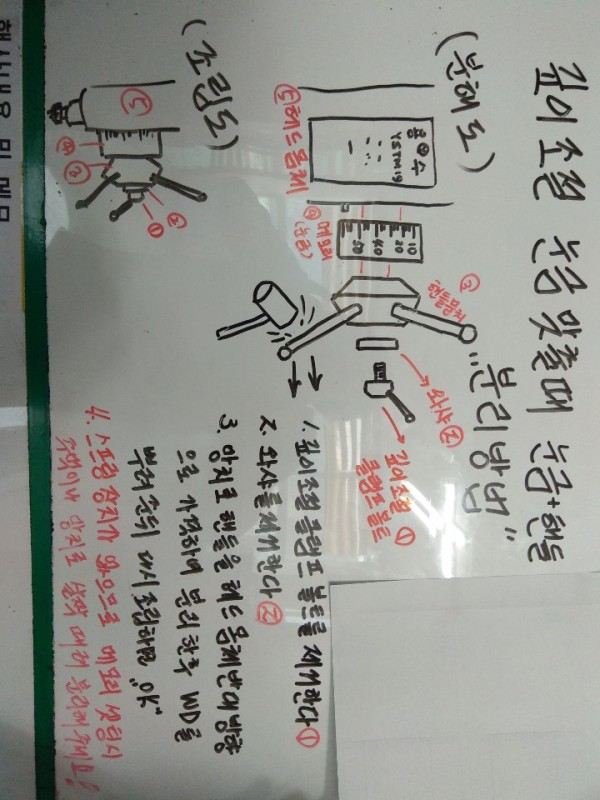 깊이 조절 눈금 맞출때 눈금+핸들
"분리방법"
(분해도)
⑤헤드몸체
용수
YSTM19
④메모리
(눈금)
10
20
40
50
③
핸들몸체
와샤②
깊이조절 ①
클램프볼트
(조립도)
⑤
④
③
②
①
1. 깊이조절 클램프 볼트를 제거한다①
2. 와샤를 제거한다②
3. 망치로 핸들을 헤드몸체반대방향
으로 가격하여 분리한후 WD를
뿌려준뒤 다시 조립하면 "OK"
4. 스프링 장치가 있으므로 메모리 셋팅시
주먹이나 망치로 살짝 때려 분리해주세요!
행사내용 및 메모